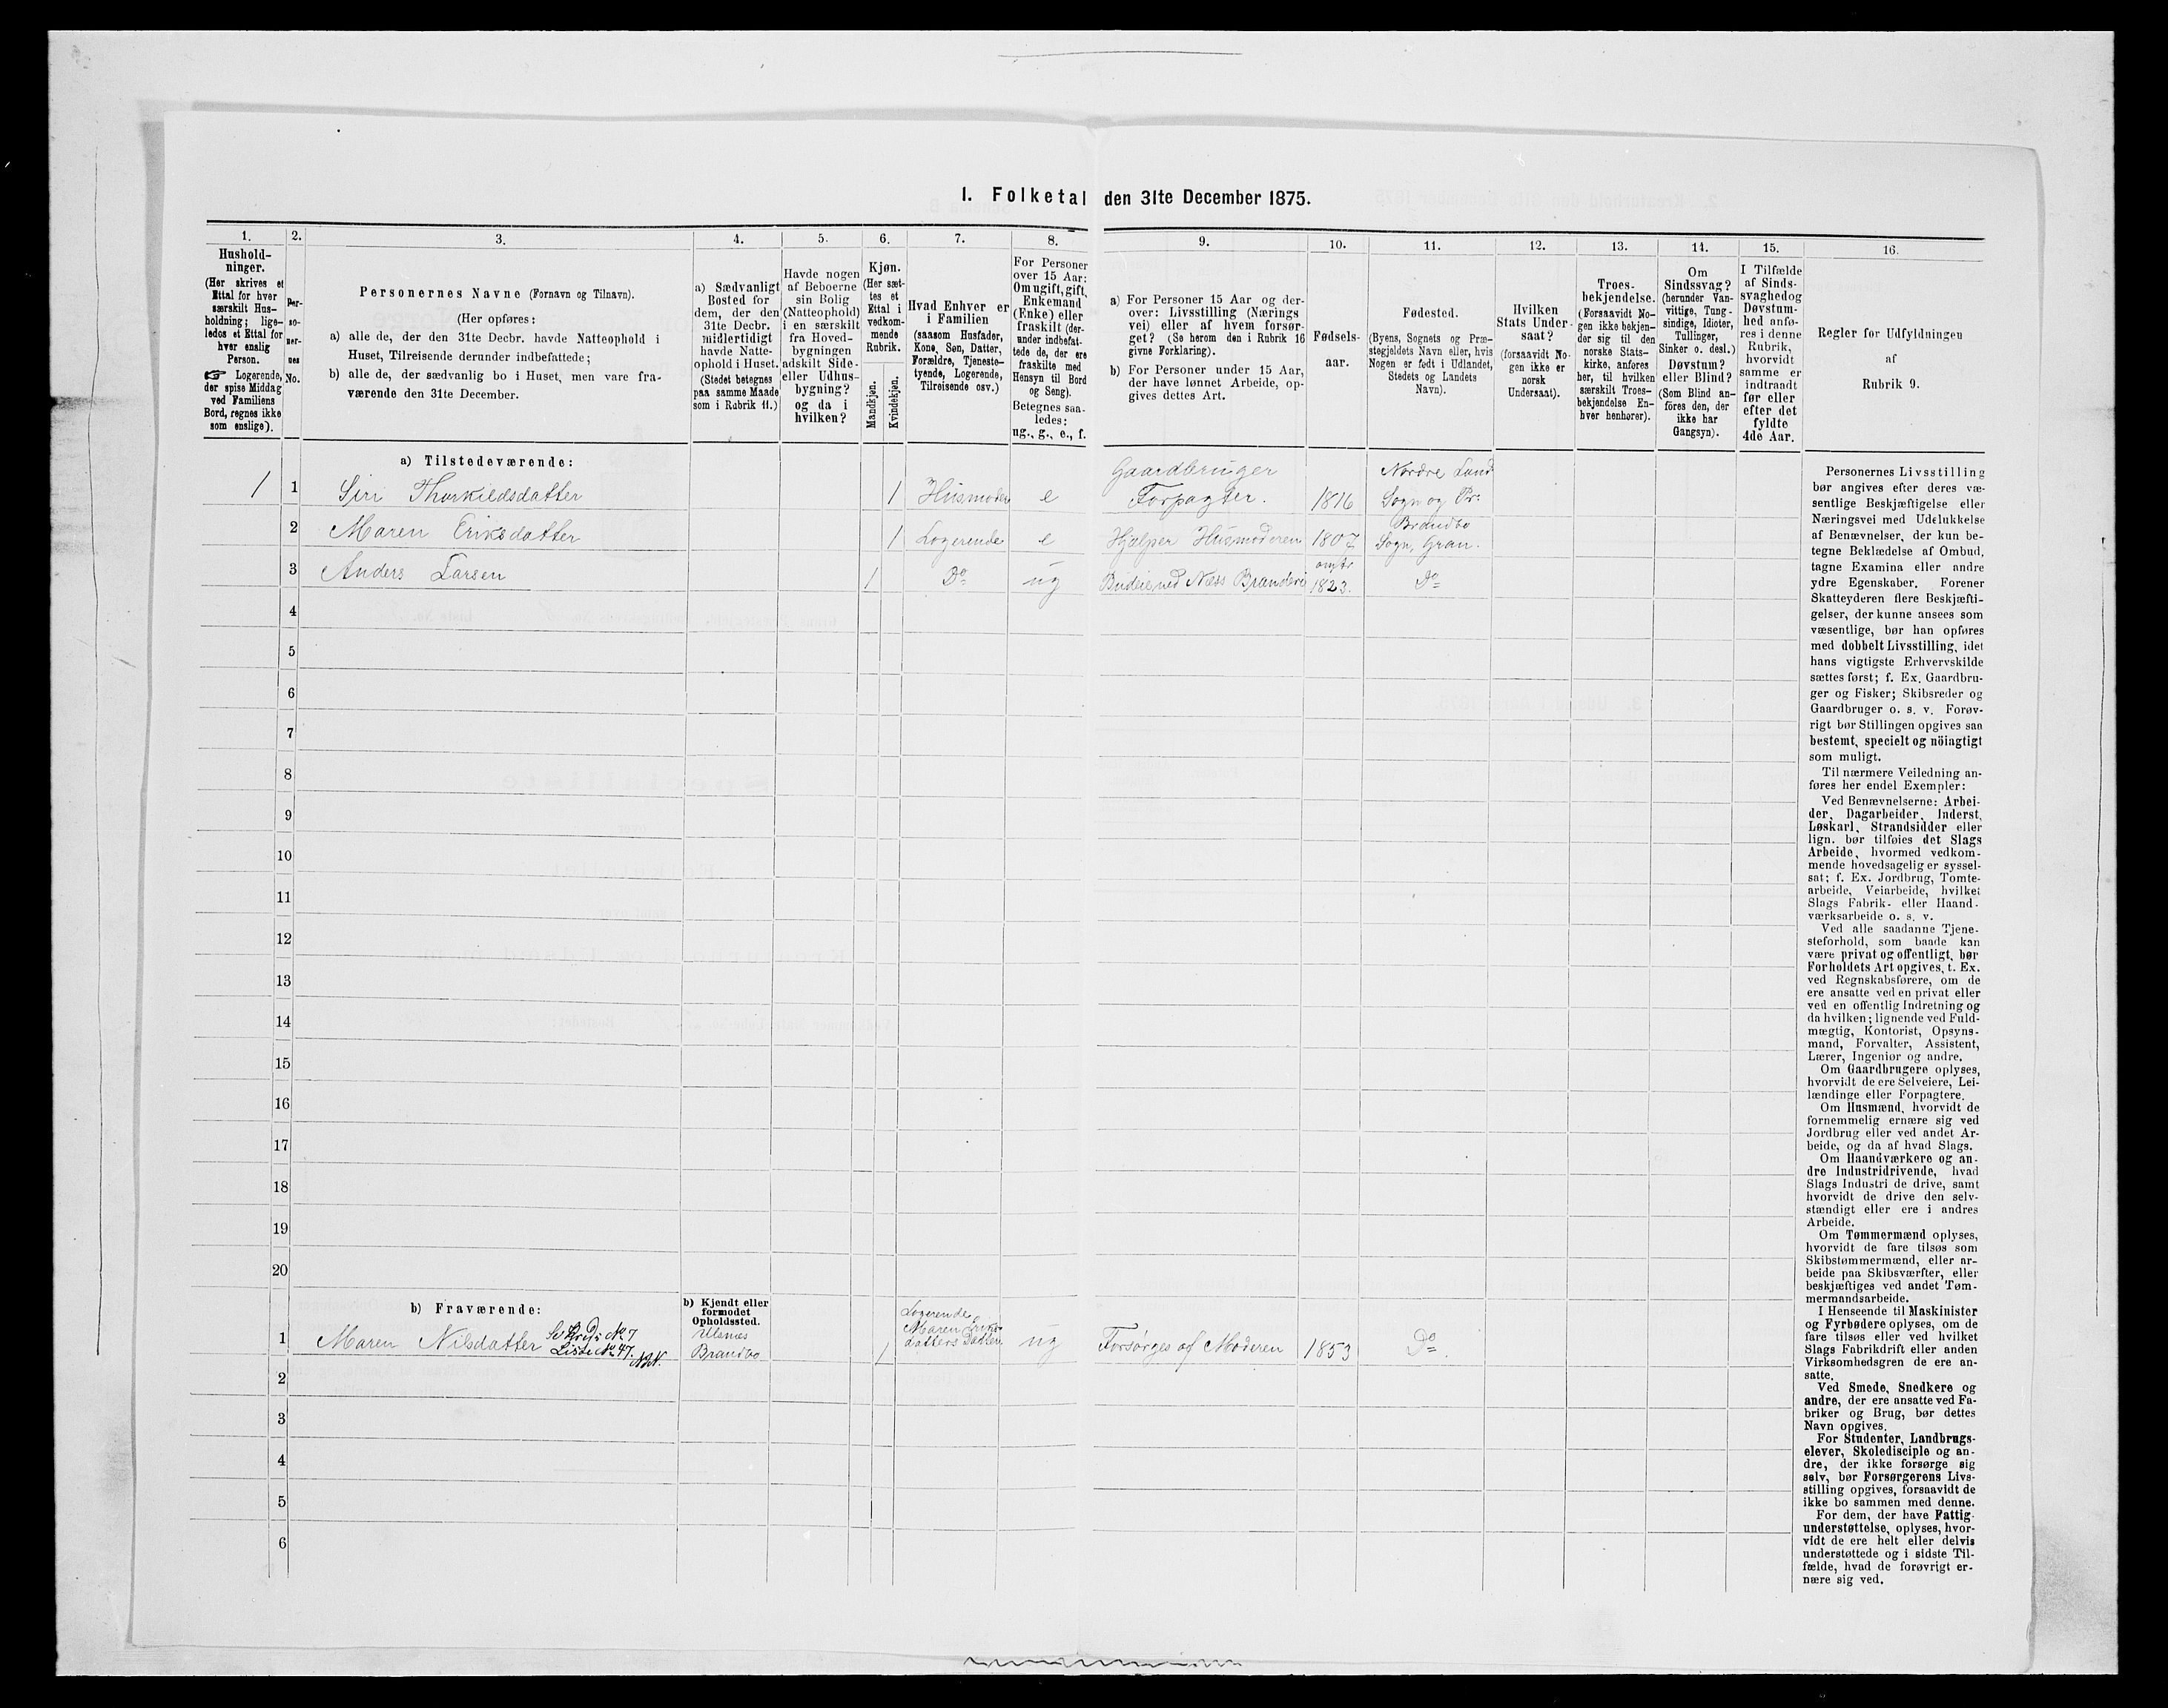 I. Folketal den 31te December 1875.
1.
2.
3.
4.
5.
6.
7.
8.
9.
10.
11.
12.
13.
14.
15.
16.
Hushold-
ninger.
(Her skrives et
Ettal for hver
særskilt Hus-
holdning; lige-
ledes et Ettal for
hver enslig
Person.
☞ Logerende,
der spise Middag
ved Familiens
Bord, regnes ikke
som enslige).
Per-
so-
ner-
nes
No.
Personernes Navne (Fornavn og Tilnavn).
(Her opføres:
a) alle de, der den 31te Decbr. havde Natteophold i
Huset, Tilreisende derunder indbefattede;
b) alle de, der sædvanlig bo i Huset, men vare fra-
værende den 31te December.
a) Sædvanligt
Bosted for
dem, der den
31te Decbr.
midlertidigt
havde Natte-
ophold i Huset.
(Stedet betegnes
paa samme Maade
som i Rubrik 11.)
Havde nogen
af Beboerne
sin Bolig
(Natteophold)
i en særskilt
fra Hoved-
bygningen
adskilt Side-
eller Udhus-
bygning?
og da i
hvilken?
Kjøn.
(Her sæt-
tes et
Ettal i
vedkom-
mende
Rubrik.
Mandkjøn.
Kvindekjøn.
Hvad Enhver er
i Familien
(saasom Husfader,
Kone, Søn, Datter,
Forældre, Tjeneste-
tyende, Logerende,
Tilreisende osv.)
For Personer
over 15 Aar:
Om ugift, gift,
Enkemand
(Enke) eller
fraskilt (der-
under indbefat-
tede de, der ere
fraskilte med
Hensyn til Bord
og Seng).
Betegnes saa-
ledes:
ug., g., e., f.
a) For Personer 15 Aar og der-
over: Livsstilling (Nærings
vei) eller af hvem forsør-
get? (Se herom den i Rubrik 16
givne Forklaring).
b) For Personer under 15 Aar,
der have lønnet Arbeide, op-
gives dettes Art.
Fødsels-
aar.
Fødested.
(Byens, Sognets og Præ-
stegjeldets Navn eller, hvis
Nogen er født i Udlandet,
Stedets og Landets
Navn).
Hvilken
Stats Under-
saat?
(forsaavidt No-
gen ikke er
norsk
Undersaat).
Troes-
bekjendelse.
(Forsaavidt No-
gen ikke bekjen-
der sig til den
norske Stats-
kirke, anføres
her, til hvilken
særskilt Troes-
bekjendelse En-
hver henhører).
Om
Sindssvag?
(herunder Van-
vittige, Tung-
sindige, Idioter,
Tullinger,
Sinker o. desl.)
Døvstum?
eller Blind?
(Som Blind an-
föres den, der
ikke har
Gangsyn).
I Tilfælde
af Sinds-
svaghed og
Døvstum-
hed anfø-
res i denne
Rubrik,
hvorvidt
samme er
indtraadt
før eller
efter det
fyldte
4de Aar.
Regler for Udfyldningen
af
Rubrik 9.
a) Tilstedeværende:
1 1 Siri Thorkildsdatter 1 Husmoder e Gaardbruger Forpagter. 1816 Nordre Land Sogn og Pr:
2 Maren Eriksdatter 1 Logerende e Hjælper Husmoderen 1807 Brandbo Sogn, Gran.
3 Anders Larsen 1 Do ug 1823. Do
4
5
6
7
8
9
10
11
12
13
14
15
16
17
18
19
20
b) Fraværende:
b) Kjendt eller
formodet
Opholdssted.
1 Maren Nilsdatter No 7 Liste No 47. Brandbo 1 Logerende Maren Eriks datters Datter ug Forsørges af Moderen 1853 Do.
2
3
4
5
6
Personernes Livsstilling
bør angives efter deres væ-
sentlige Beskjæftigelse eller
Næringsvei med Udelukkelse
af Benævnelser, der kun be-
tegne Beklædelse af Ombud,
tagne Examina eller andre
ydre Egenskaber. Forener
Skatteyderen flere Beskjæfti-
gelser, der kunne ansees som
væsentlige, bør han opføres
med dobbelt Livsstilling, idet
hans vigtigste Erhvervskilde
sættes først; f. Ex. Gaardbru-
ger og Fisker; Skibsreder og
Gaardbruger o. s. v. Forøv-
rigt bør Stillingen opgives saa
bestemt, specielt og nöiagtigt
som muligt.
Til nærmere Veiledning an-
føres her endel Exempler:
Ved Benævnelserne: Arbei-
der, Dagarbeider, Inderst,
Løskarl, Strandsidder eller
lign. bør tilføies det Slags
Arbeide, hvormed vedkom-
mende hovedsagelig er syssel-
sat; f. Ex. Jordbrug, Tomte-
arbeide, Veiarbeide, hvilket
Slags Fabrik- eller Haand-
værksarbeide o. s. v.
Ved alle saadanne Tjene-
steforhold, som baade kan
være privat og offentligt, bør
Forholdets Art opgives, t. Ex.
ved Regnskabsførere, om de
ere ansatte ved en privat eller
ved en offentlig Indretning og
da hvilken; lignende ved Fuld-
mægtig, Kontorist, Opsyns-
mand, Forvalter, Assistent,
Lærer, Ingeniør og andre.
Om Gaardbrugere oplyses,
hvorvidt de ere Selveiere, Lei-
lændinge eller Forpagtere.
Om Husmænd, hvorvidt de
fornemmelig ernære sig ved
Jordbrug eller ved andet Ar-
beide, og da af hvad Slags.
Om Haandværkere og an-
dre Industridrivende, hvad
Slags Industri de drive, samt
hvorvidt de drive den selv-
stændigt eller ere i andres
Arbeide.
Om Tømmermænd oplyses,
hvorvidt de fare tilsøs som
Skibstømmermænd, eller ar-
beide paa Skibsværfter, eller
beskjæftiges ved andet Tøm-
mermandsarbeide.
I Henseende til Maskinister
og Fyrbødere oplyses, om de
fare tilsøs eller ved hvilket
Slags Fabrikdrift eller anden
Virksomhedsgren de ere an-
satte.
Ved Smede, Snedkere og
andre, der ere ansatte ved Fa-
briker og Brug, bør dettes
Navn opgives.
For Studenter, Landbrugs-
elever, Skoledisciple og an-
dre, der ikke forsørge sig
selv, bør Forsørgerens Livs-
stilling opgives, forsaavidt de
ikke bo sammen med denne.
For dem, der have Fattig-
understøttelse, oplyses, hvor-
vidt de ere helt eller delvis
understøttede og i sidste Til-
fælde, hvad de forøvrigt er-
nære sig ved.